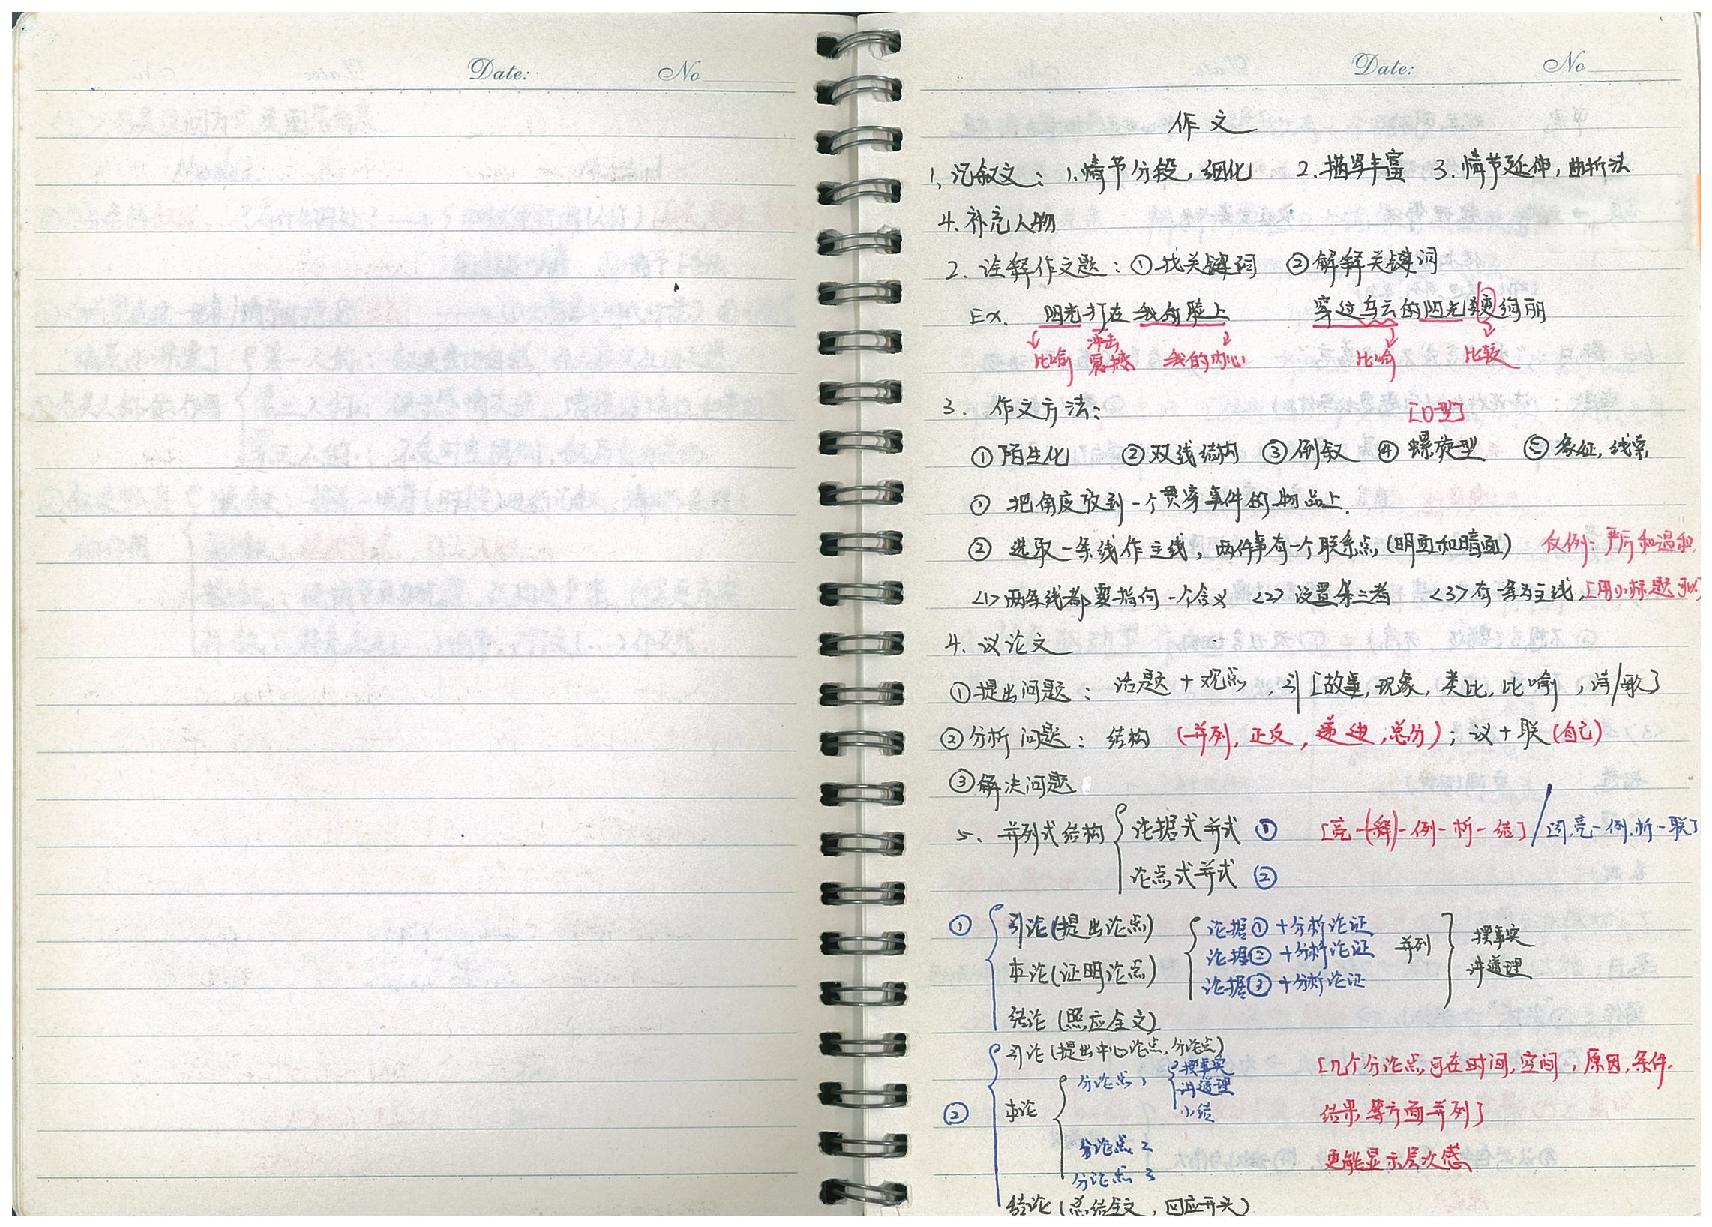 Date: No
Date: No
作文
1. 记叙文: 1. 情节分段, 细化 2. 描写丰富 3. 情节延伸, 曲折法
4. 补充人物
2. 诠释作文题: ①找关键词 ②解释关键词
Ex. 阳光打在我的脸上 穿过乌云的阳光更绚丽
比喻 冲击 震撼 我的内心 比喻 比较
3. 作文方法: [O型]
①陌生化 ②双线结构 ③倒叙 ④螺旋型 ⑤象征, 线索
① 把角度放到一个贯穿事件的物品上.
② 选取一条线作主线, 两件事有一个联系点 (明面和暗面) 反例: 严厉和温和
<1>两条线都要指向一个含义 <2>设置第三者 <3>有一条为主线, [用小标题
4. 议论文
①提出问题: 话题+观点, 引[故事, 现象, 类比, 比喻, 诗/歌]
②分析问题: 结构 (并列, 正反, 递进, 总分); 议+联(自己)
③解决问题
5. 并列式结构 论据式并式 ① [亮-(释)-例-析-结] / 引, 亮-例, 析-联]
论点式并式 ②
① 引论(提出论点) 论据①+分析论证
本论(证明论点) 论据②+分析论证 并列 摆事实
论据③+分析论证 讲道理
结论(照应全文)
引论(提出中心论点, 分论点)
分论点1 摆事实 [几个分论点可在时间, 空间, 原因, 条件,
讲道理
② 本论 小结 结果等方面并列]
分论点2 更能显示层次感
分论点3
结论(总结全文, 回应开头)